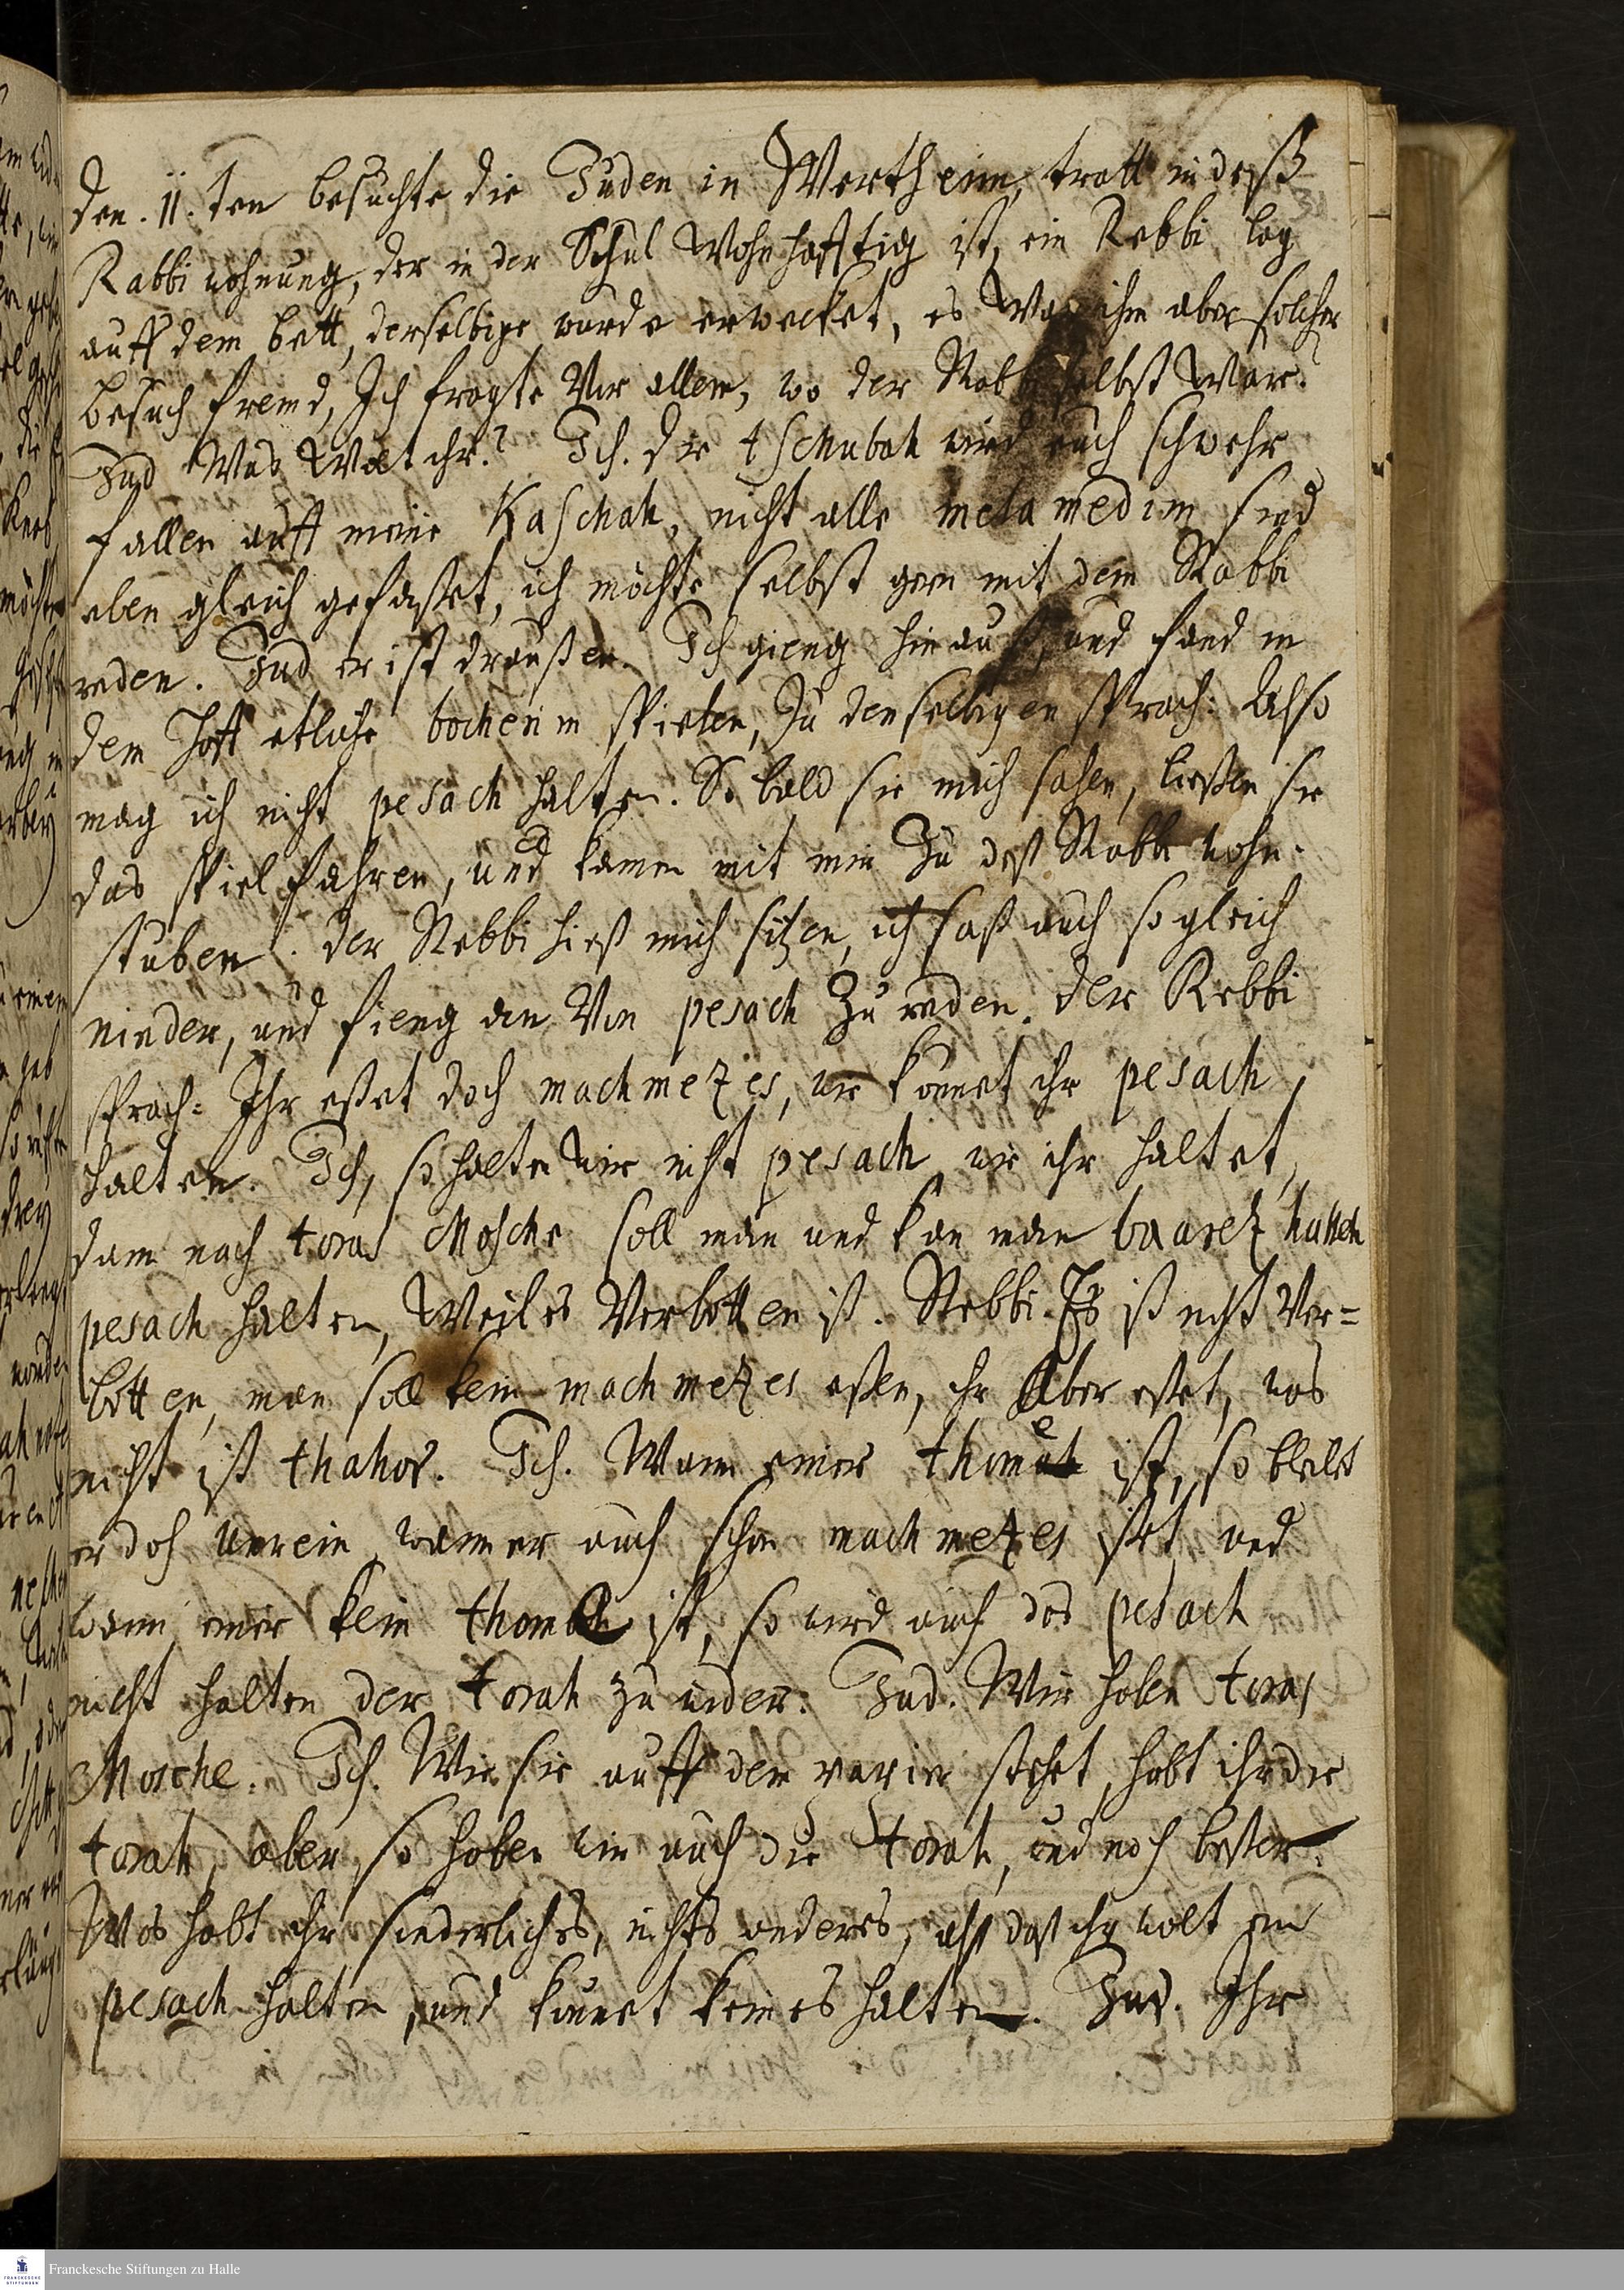 den. 11. ten besuchte die Juden in Wertheim, tratt in deß
Rabbi wohnung, der in der Schul Wohnhafftig ist, ein Rebbi lag
auff dem bett, derselbige wurde erwecket, es War ihm aber solcher
besuch fremd, Ich fragte Vor allem, wo der Rabbi selbst Wäre.
Jud Was Wolt ihr? Ich. die tschubah wird euch schwehr
fallen auff meine Kaschah, nicht alle melamedim sind
eben gleich gefasset, ich möchte selbst gern mit dem Rabbi
reden. Jud er ist draußen. Ich gieng hinauß, und fand in
dem Hoff etliche bocherim spielen, Zu denselbigen sprach: Also
mag ich nicht pesach halten. So bald sie mich sahen, ließen sie
das spiel fahren, und kamen mit mir Zu deß Rabbi wohn-
stuben. der Rebbi hieß mich sitzen, ich saß auch so gleich
nieder, und fieng an Von pesach Zu reden. der Rebbi
sprach: Ihr esset doch machmezes, wie könnet ihr pesach
halten. Ich, so halten wir nicht pesach wie ihr haltet,
dann nach toras Mosche soll man und kan man baarez hatteh
pesach halten, Weil es Verbotten ist. Rebbi. Es ist nicht Ver=
botten, man soll kein machmezes essen, ihr Aber esset, was
nicht ist thahor. Ich. Wann einer thome ist, so bleibt
er doch unrein, wann er auch schon machmezes ißt, und
wann einer kein thome ist, so wird auch das pesach
nicht halten der torah zu wider. Jud. Wir haben toras
Mosche. Ich. Wie sie auff dem papier stehet, habt ihr die
torah, aber so haben wir auch die torah, und noch besser.
Was habt ihr sonderliches, nichts anderes, alß daß ihr wolt ein
pesach halten, und könnet keines halten. Jud. Ihr
Franckesche Stiftungen zu Halle